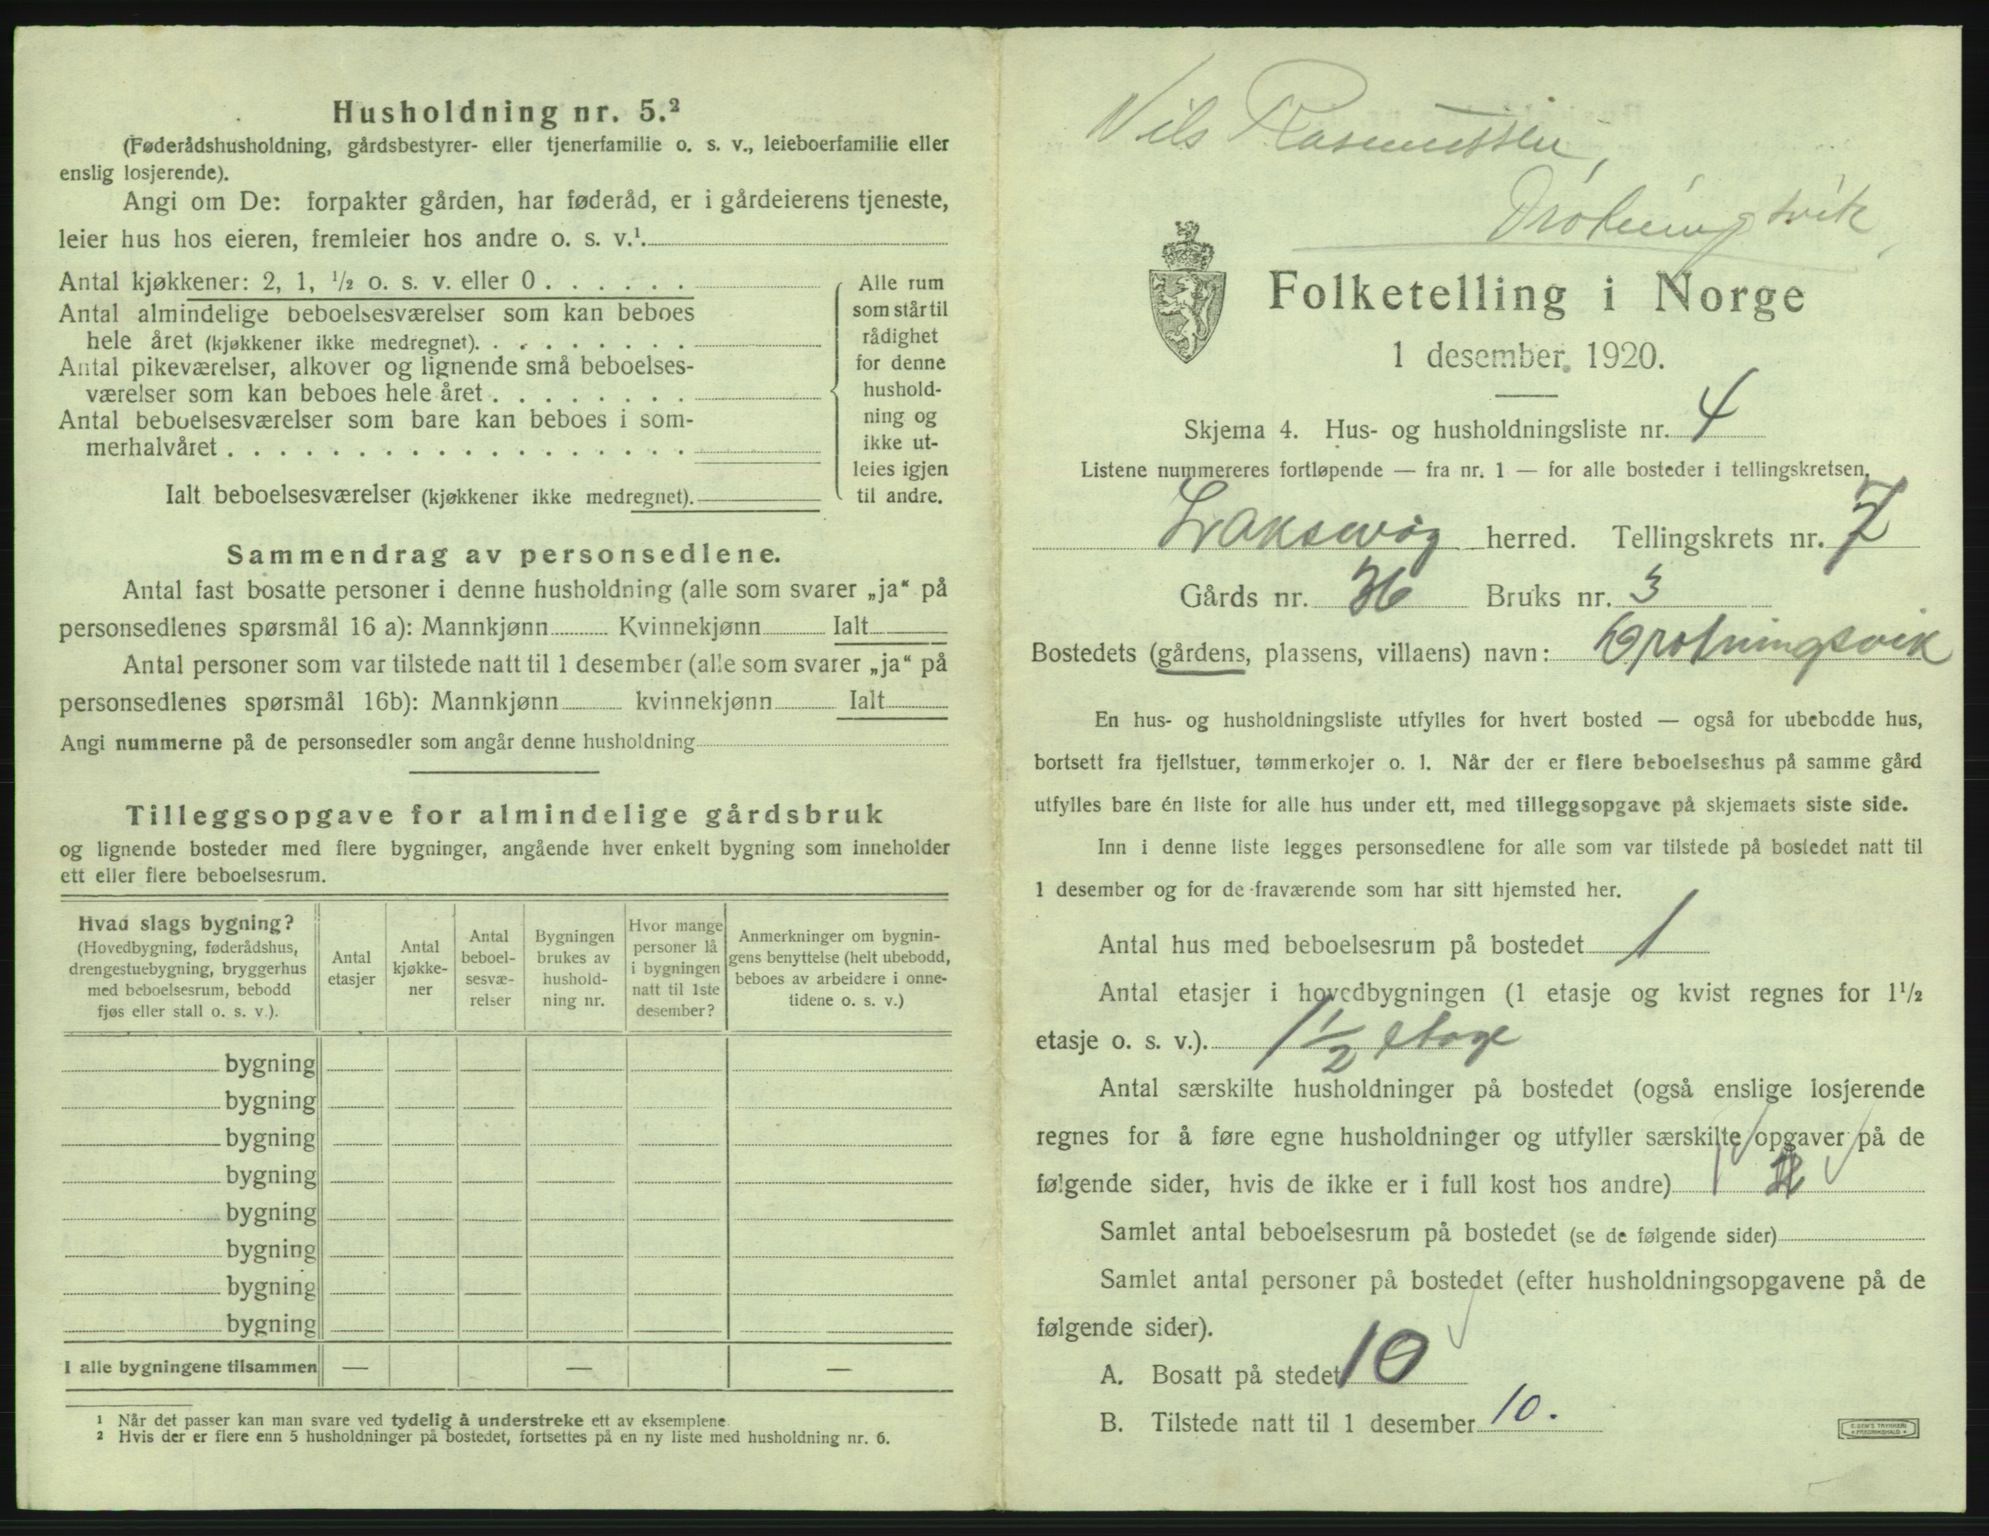 Husholdning nr. 5.²
(Føderådshusholdning, gårdsbestyrer- eller tjenerfamilie o. s. v., leieboerfamilie eller
enslig losjerende).
Angi om De: forpakter gården, har føderåd, er i gårdeierens tjeneste,
leier hus hos eieren, fremleier hos andre o. s. v.¹
Antal kjøkkener: 2, 1, ½ o. s. v. eller 0 . . . . . .
Antal almindelige beboelsesværelser som kan beboes
hele året (kjøkkener ikke medregnet). . . . . . . . .
Antal pikeværelser, alkover og lignende små beboelses-
værelser som kan beboes hele året . . . . . . . .
Antal beboelsesværelser som bare kan beboes i som-
merhalvåret . . . . . . . . . . . . . . . . . .
Ialt beboelsesværelser (kjøkkener ikke medregnet).
Alle rum
som står til
rådighet
for denne
hushold-
ning og
ikke ut-
leies igjen
til andre.
Sammendrag av personsedlene.
Antal fast bosatte personer i denne husholdning (alle som svarer „ja“ på
personsedlenes spørsmål 16 a): Mannkjønn Kvinnekjønn Ialt
Antal personer som var tilstede natt til 1 desember (alle som svarer „ja“ på
personsedlenes spørsmål 16b): Mannkjønn kvinnekjønn Ialt
Angi nummerne på de personsedler som angår denne husholdning
Tilleggsopgave for almindelige gårdsbruk
og lignende bosteder med flere bygninger, angående hver enkelt bygning som inneholder
ett eller flere beboelsesrum.
Hvad slags bygning?
(Hovedbygning, føderådshus,
drengestuebygning, bryggerhus
med beboelsesrum, bebodd
fjøs eller stall o. s. v.).
Antal
etasjer
Antal
kjøkke-
ner
Antal
beboel-
sesvæ-
relser
Bygningen
brukes av
hushold-
ning nr.
Hvor mange
personer lå
i bygningen
natt til 1ste
desember?
Anmerkninger om bygnin-
gens benyttelse (helt ubebodd,
beboes av arbeidere i onne-
tidene o. s. v.)
bygning
bygning
bygning
bygning
bygning
bygning
bygning
bygning
I alle bygningene tilsammen — — —
¹ Når det passer kan man svare ved tydelig å understreke ett av eksemplene.
² Hvis der er flere enn 5 husholdninger på bostedet, fortsettes på en ny liste med husholdning nr. 6.
Nils Rasmussen,
Drotningsvik
Folketelling i Norge
1 desember 1920.
Skjema 4. Hus- og husholdningsliste nr. 4
Listene nummereres fortløpende — fra nr. 1 — for alle bosteder i tellingskretsen.
Laksevåg herred. Tellingskrets nr. 7
Gårds nr. 36 Bruks nr. 3
Bostedets (gårdens, plassens, villaens) navn: Drotningsvik
En hus- og husholdningsliste utfylles for hvert bosted — også for ubebodde hus,
bortsett fra fjellstuer, tømmerkojer o. l. Når der er flere beboelseshus på samme gård
utfylles bare én liste for alle hus under ett, med tilleggsopgave på skjemaets siste side.
Inn i denne liste legges personsedlene for alle som var tilstede på bostedet natt til
1 desember og for de fraværende som har sitt hjemsted her.
Antal hus med beboelsesrum på bostedet 1
Antal etasjer i hovedbygningen (1 etasje og kvist regnes for 1½
etasje o. s. v.). 1 ½ etage
Antal særskilte husholdninger på bostedet (også enslige losjerende
regnes for å føre egne husholdninger og utfyller særskilte opgaver på de
følgende sider, hvis de ikke er i full kost hos andre)
Samlet antal beboelsesrum på bostedet (se de følgende sider)
Samlet antal personer på bostedet (efter husholdningsopgavene på de
følgende sider).
A. Bosatt på stedet 10
B. Tilstede natt til 1 desember 10.